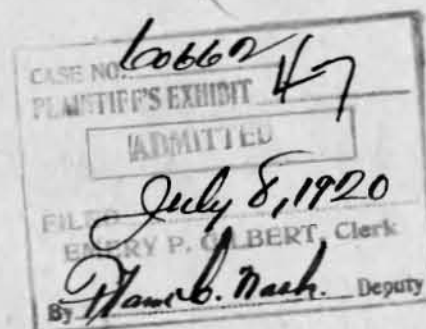 CASE NO. 60662
PLAINTIFF'S EXHIBIT 47
ADMITTED
July 8, 1920
FILED
EMERY P. GILBERT, Clerk
By Nash. Deputy